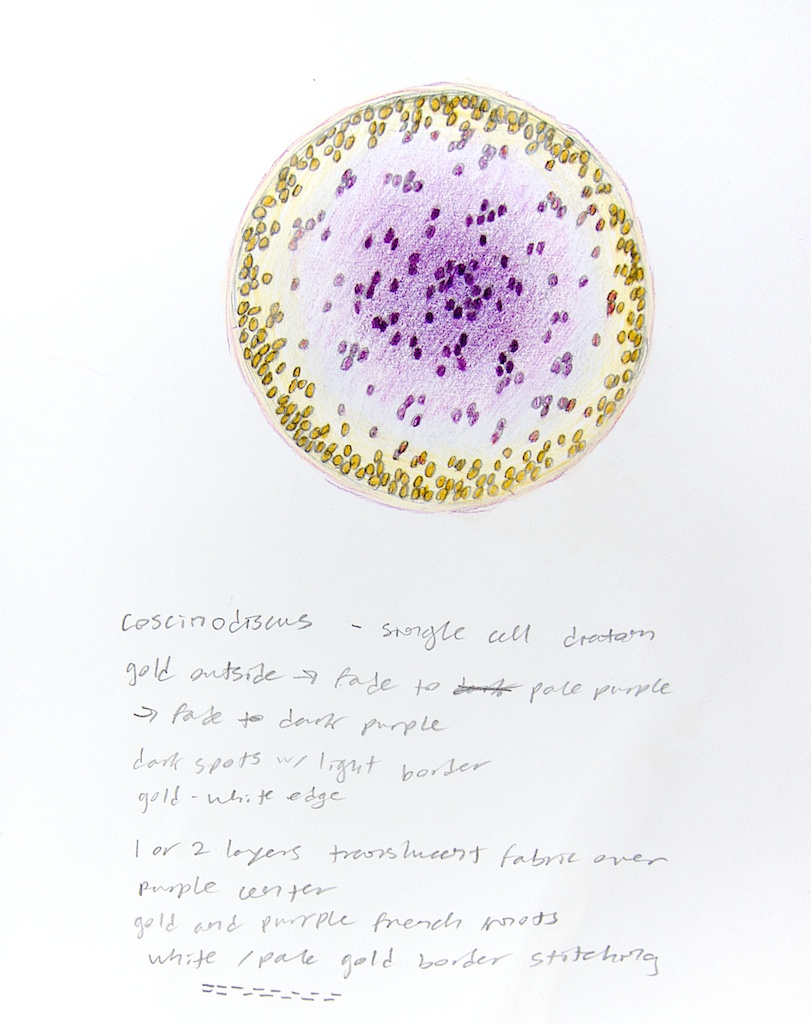 coscinodiscus - single cell diatom
gold outside → fade to dark pale purple
→ fade to dark purple
dark spots w/ light border
gold-white edge
1 or 2 layers translucent fabric over
purple center
gold and purple french knots
white / pale gold border stitching